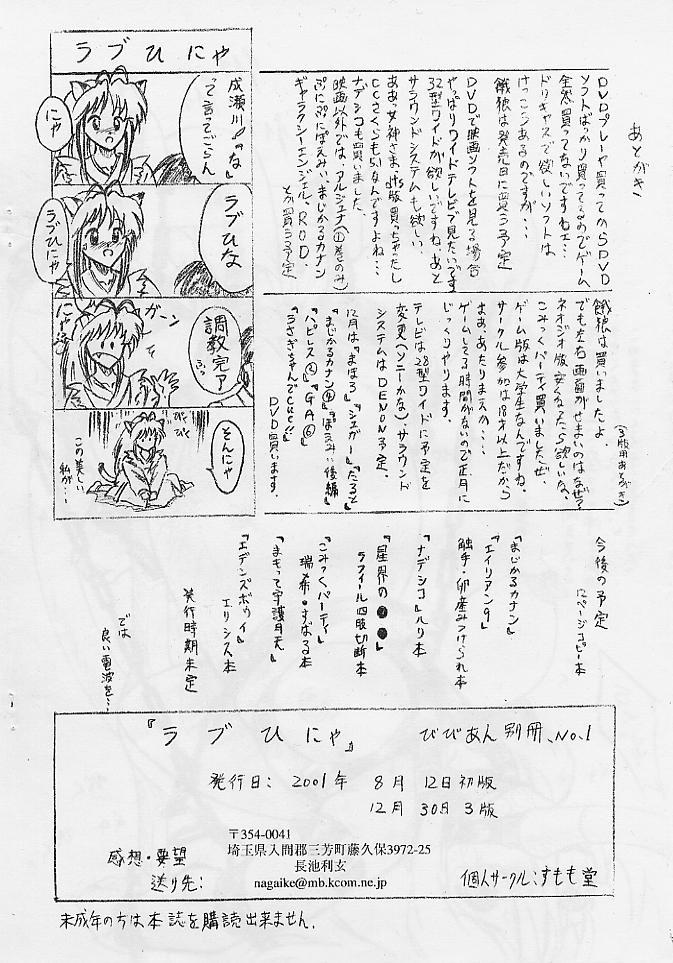 ラブひにゃ
成瀬川!「な」
って言ってごらん
にゃ
ラブひな
ラブひにゃ
調教完了
ふっ
ガーン
にゃ
そんにゃ
びくびく
この美しい
私が…
あとがき
DVDプレーヤ買ってからDVD
ソフトばっかり買ってるのでゲーム
全然買ってないですねェ…
ドリキャスで欲しいソフトは
けっこうあるのですが…
餓狼は発売日に買う予定
DVDで映画ソフトを見る場合
やっぱりワイドテレビで見たいです
32型ワイドが欲しいですね、あと
サラウンドシステムも欲しい
ああっ女神さまdts版買っちゃったし
CCさくらも5.1なんですよね…
ナデシコも買いました
映画以外では、アルジェナ(①巻のみ)
ぷにぷにぽえみぃ、まじかるカナン
ギャラクシーエンジェル、R.O.D.
とか買う予定
(3版用あとがき)
餓狼は買いましたよ。
でも左右画面がせまいのはなぜ?
ネオジオ版安くなったら欲しいな。
こみっくパーティー買いましたぜ、
ゲーム版は大学生なんですね。
サークル参加は18才以上だから
まぁ、あたりまえか…
ゲームしてる時間がないので正月に
じっくりやります。
テレビは28型ワイドに予定を
変更(ソニーかな)、サラウンド
システムはDENON予定、
12月は『まほろ』『シュガー』『たると』
『まじかるカナン④』『ぽえみぃ後編』
『ハピレス②』『GA⑥』
『うさぎちゃんでCue!!』
DVD買います。
今後の予定
12ページコピー本
『まじかるカナン』
『エイリアン9』
触手・卵産みつけられ本
『ナデシコ』ルリ本
『星界の●●』
ラフィール四肢切断本
『こみっくパーティー』
瑞希・すばる本
『まもって守護月天』
『エデンズボゥイ』
エリシス本
発行時期未定
では
良い電波を…
『ラブひにゃ』 びびあん別冊、No.1
発行日: 2001年 8月 12日初版
12月 30日 3版
〒354-0041
埼玉県入間郡三芳町藤久保3972-25
長池利玄
nagaike@mb.kcom.ne.jp
感想・要望
送り先:
個人サークル:すもも堂
未成年の方は本誌を購読出来ません.